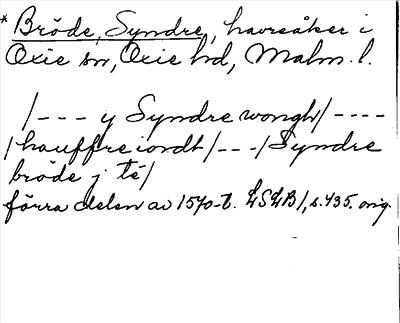 * Bröde, Syndre, havreåker i
Oxie sn, Oxie hd, Malm. l.
/--- y Syndre wongh/----
/hauffre iordt/---/Syndre
bröde j té/
förra delen av 1570-t. LSLB1, s. 435. orig.